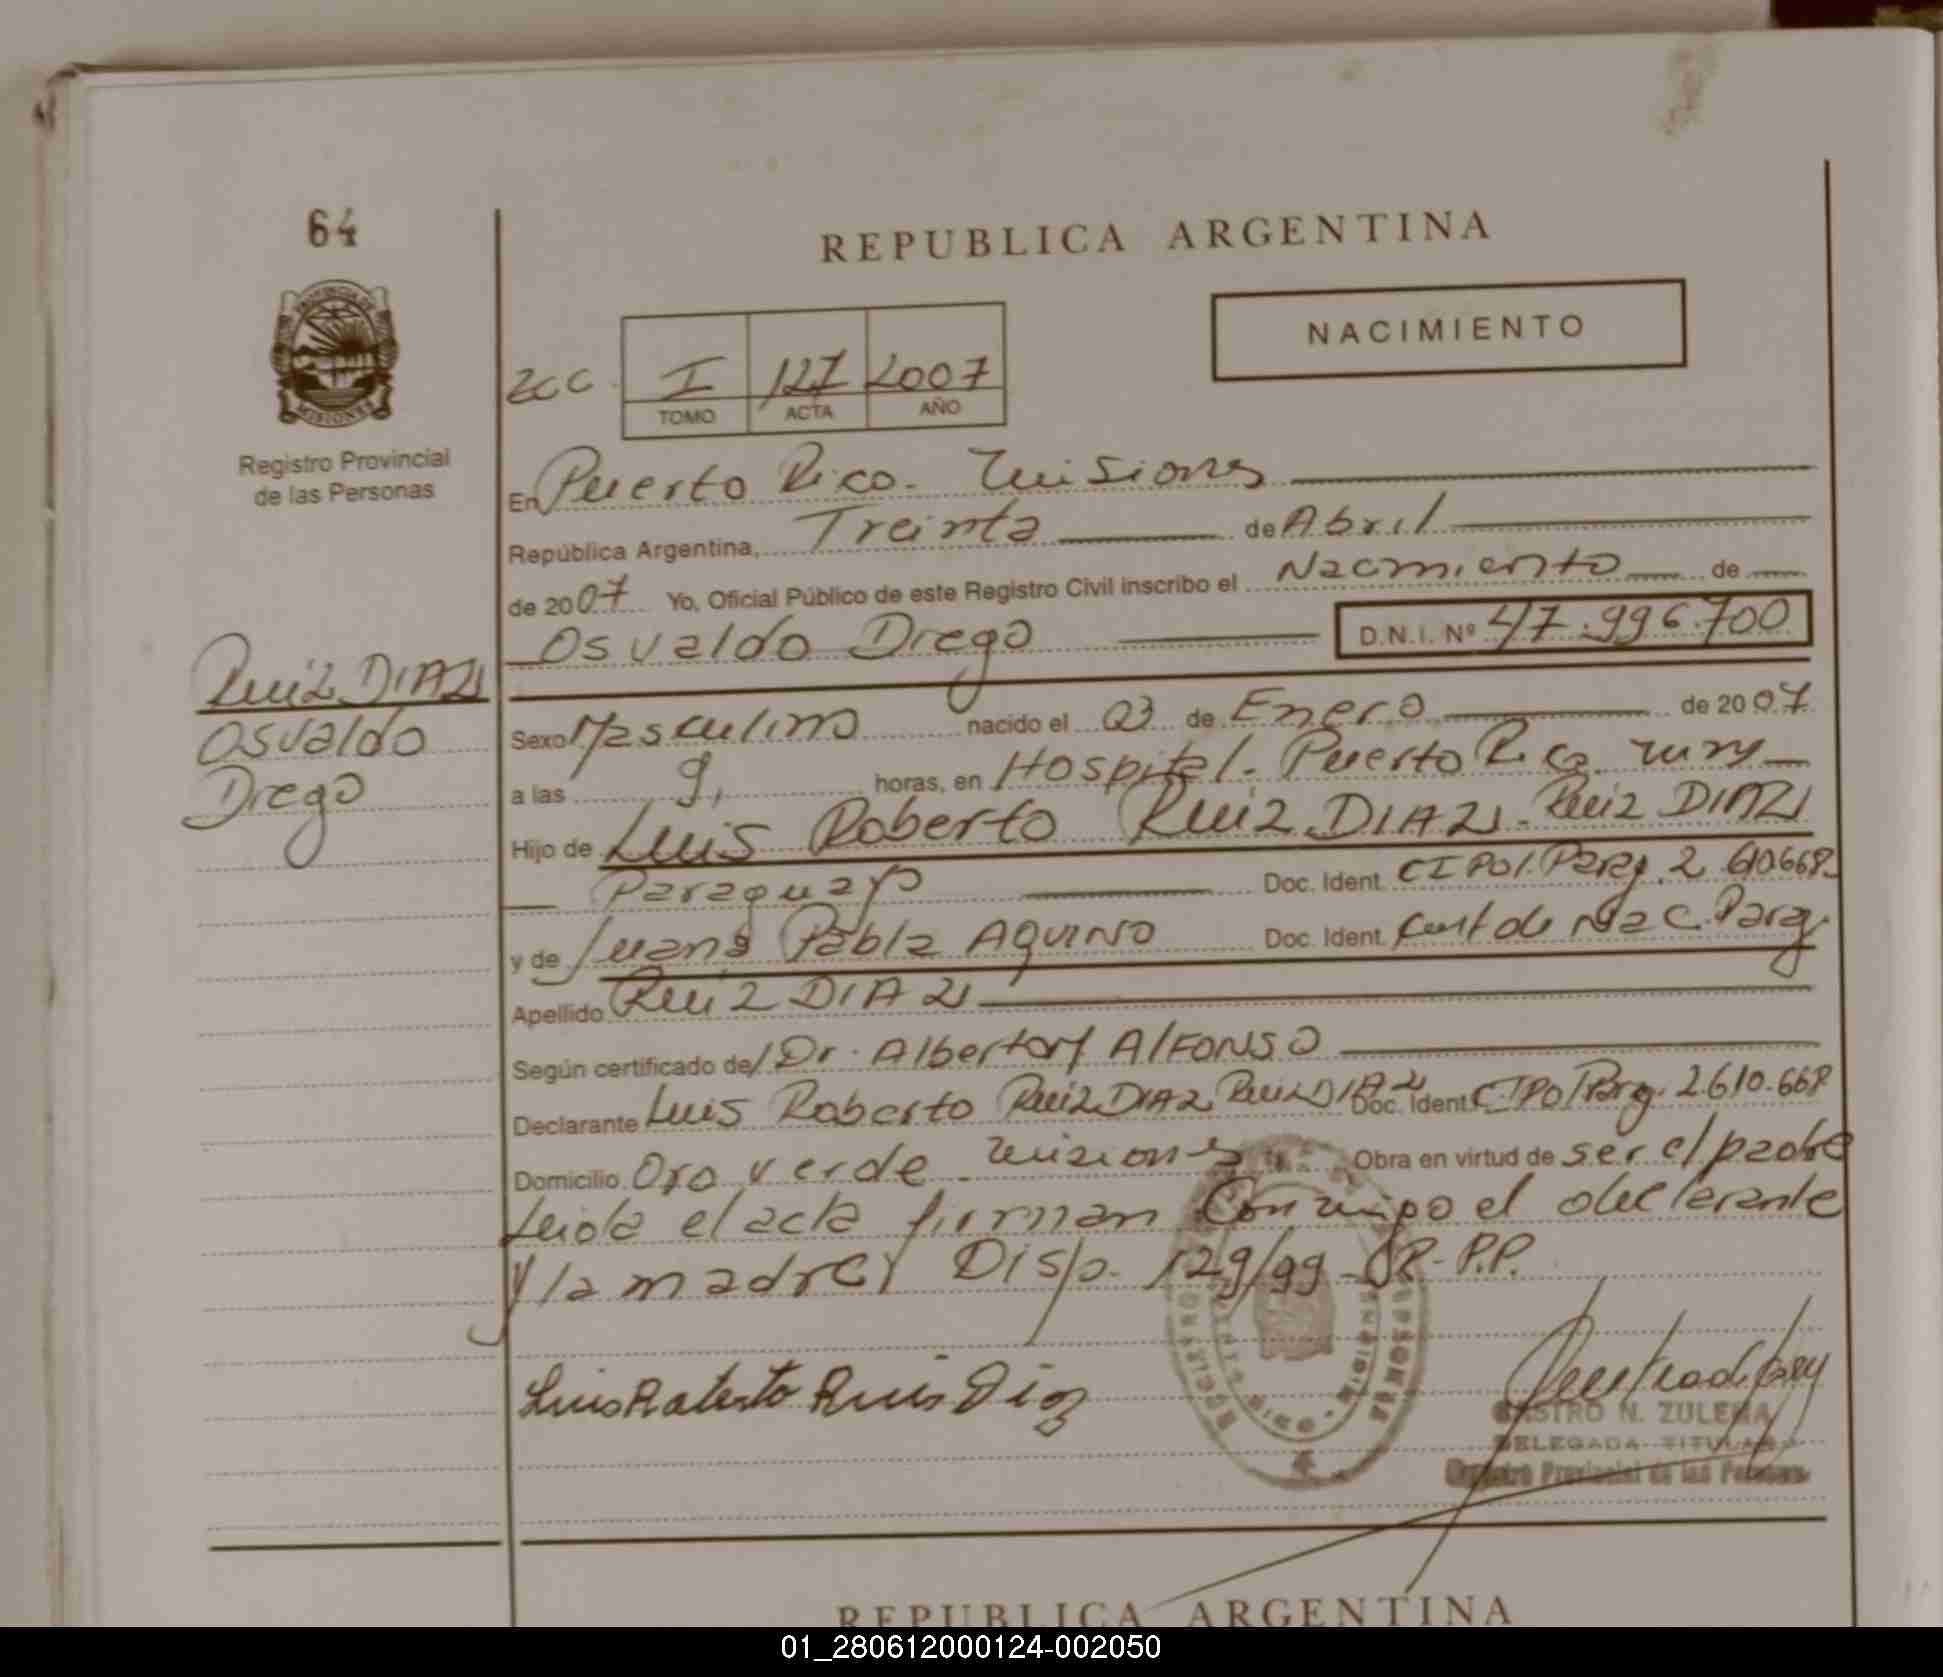 64
PROVINCIA DE
MISIONES
Registro Provincial
de las Personas
REPUBLICA ARGENTINA
NACIMIENTO
I 127 2007
TOMO ACTA AÑO
En Puerto Rico. Misiones
República Argentina, Treinta de Abril
de 2007 Yo, Oficial Público de este Registro Civil inscribo el Nacimiento de
Osvaldo Diego D.N.I. Nº 47.996.700
Ruiz DIAZ
Osvaldo
Diego
Sexo Masculino nacido el 03 de Enero de 2007
a las 9, horas, en Hospital. Puerto Rico
Hijo de Luis Roberto Ruiz DIAZ - Ruiz DIAZ
Paraguayo Doc. Ident. CI Pol. Parag. 2.610.668
y de Juana Pabla AQUINO Doc. Ident. Cert de Nac. Parag
Apellido Ruiz DIAZ
Según certificado de/ Dr. Alberto ALFONSO
Declarante Luis Roberto Ruiz DIAZ Ruiz DIAZ Doc. Ident. CI Pol Parg. 2.610.668
Domicilio Oro verde Misiones Obra en virtud de ser el padre
Leida el acta firman Conmigo el declarante
y la madre/ Disp. 129/99 - R.P.P.
Luis Roberto Ruis Diaz
CASTRO N. ZULEMA
DELEGADA TITULAR
Registro Provincial de las Personas
REPUBLICA ARGENTINA
01_280612000124-002050